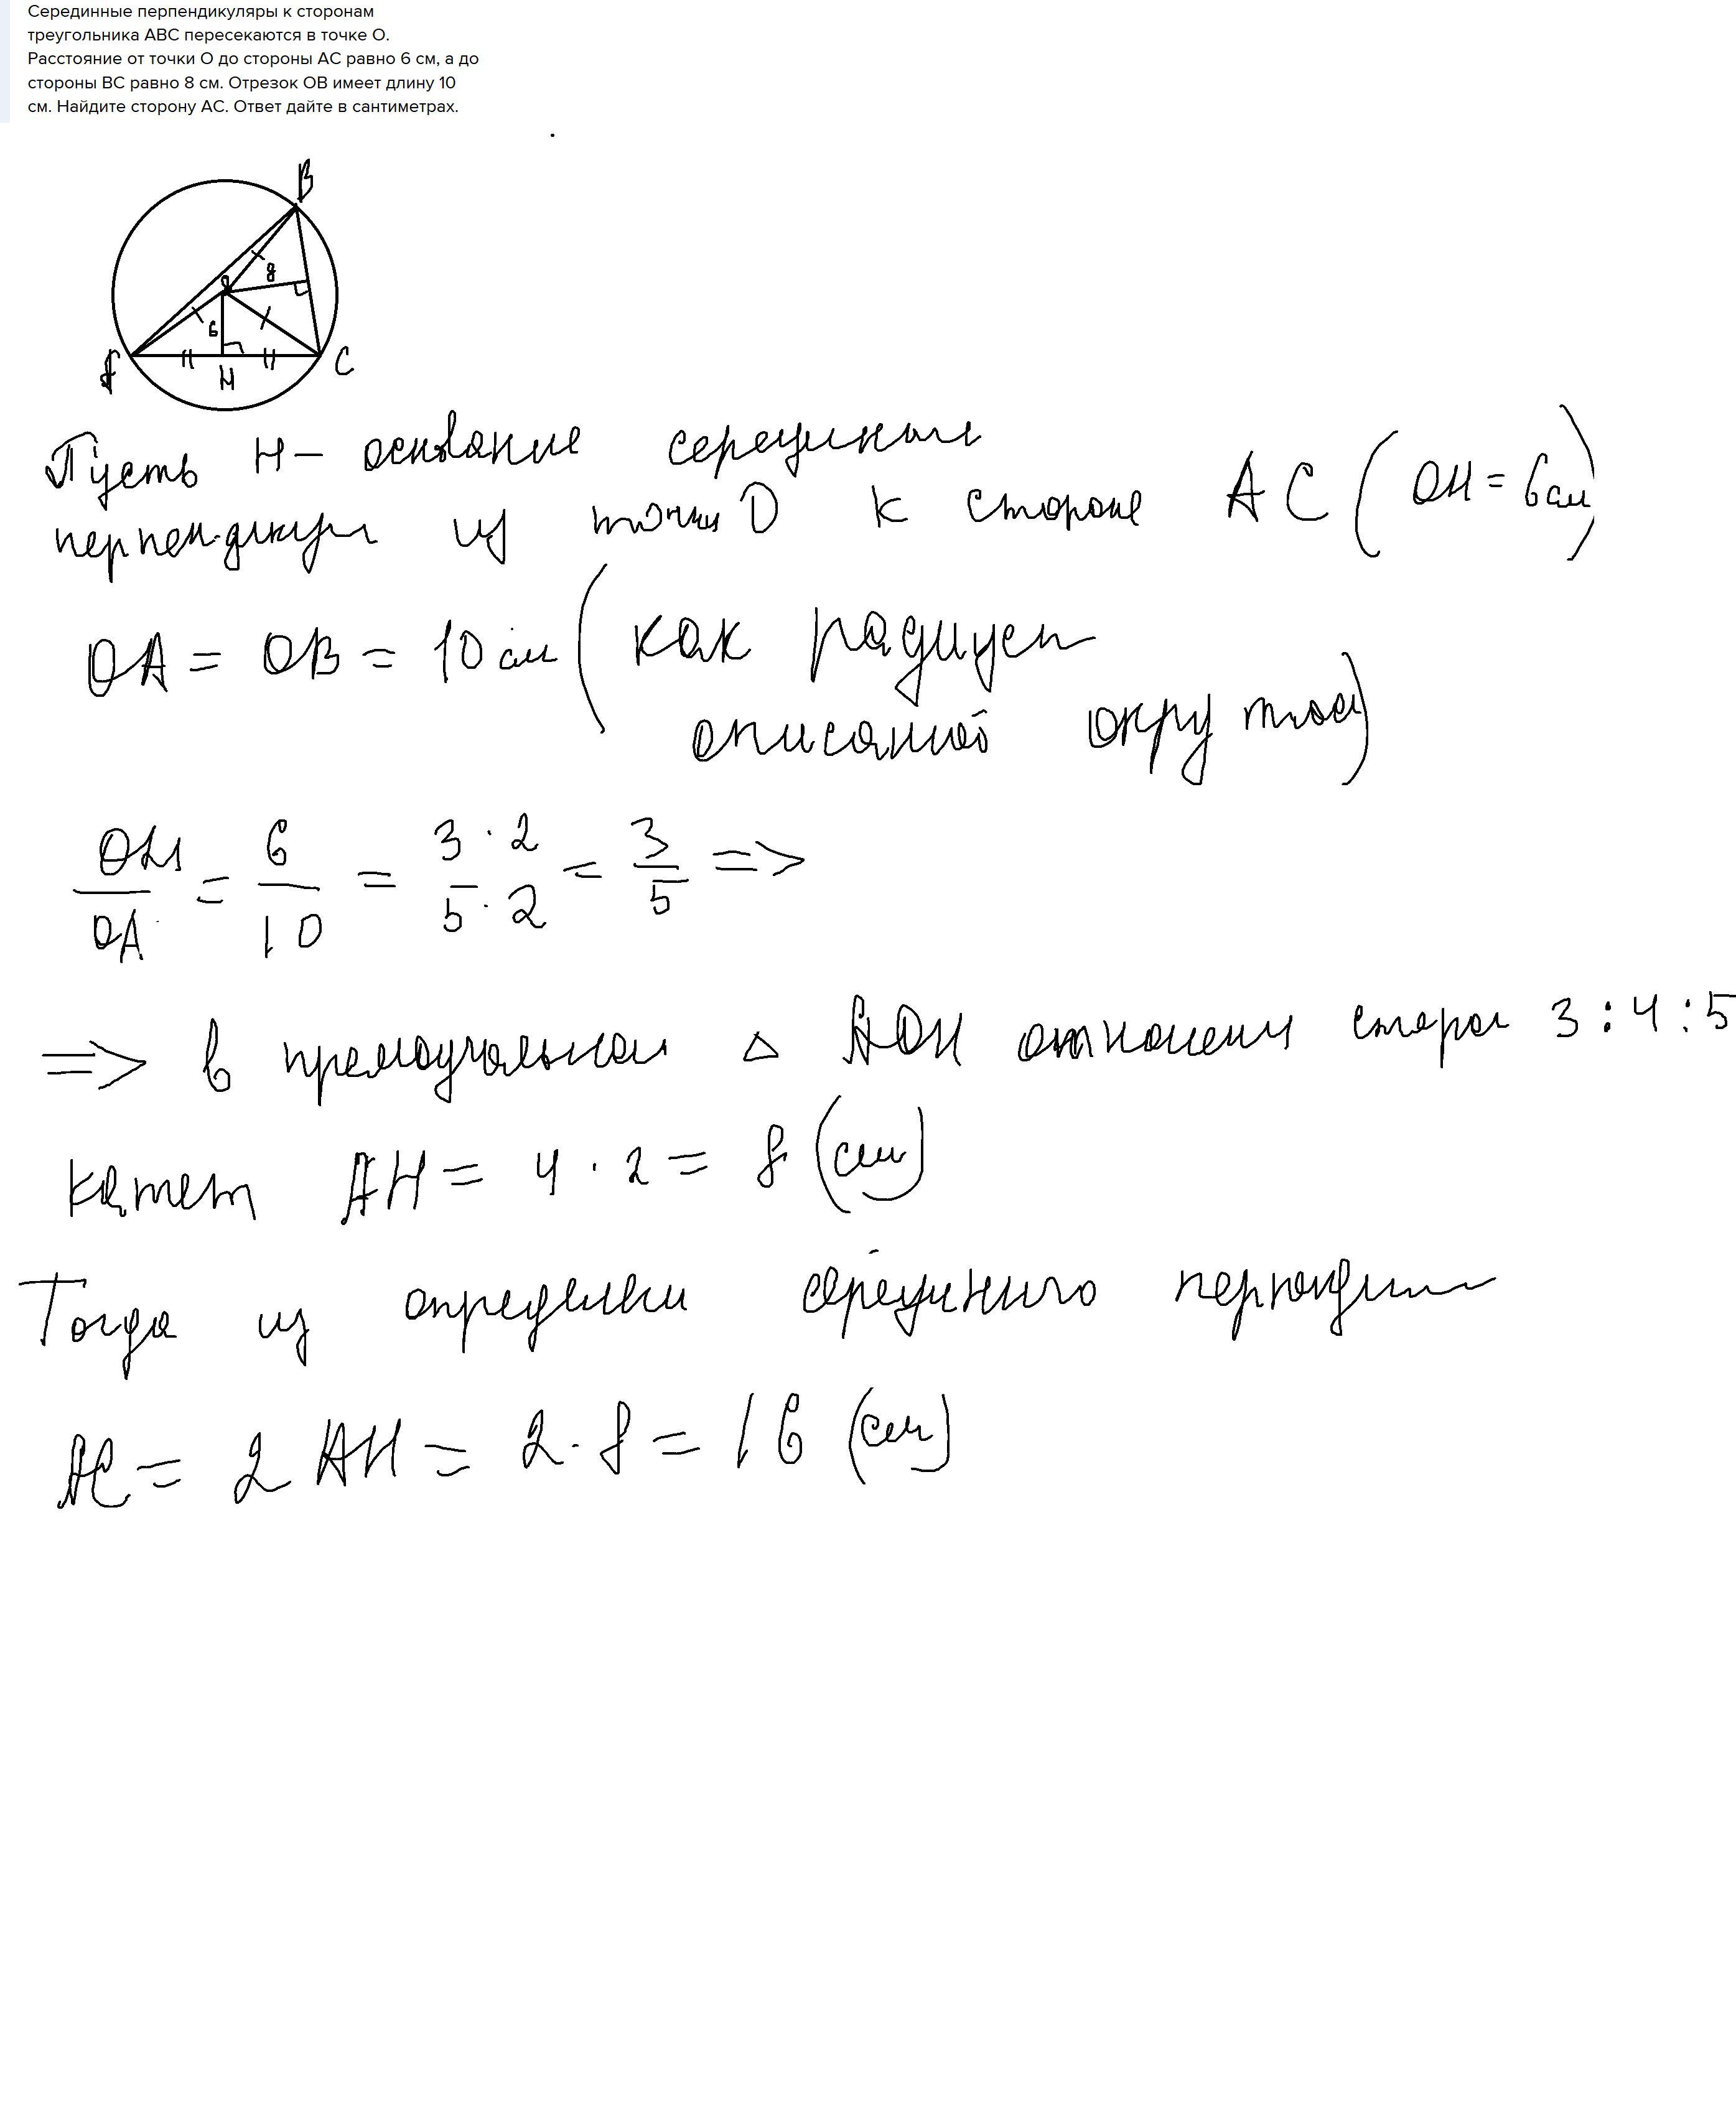 Серединные перпендикуляры к сторонам
треугольника ABC пересекаются в точке O.
Расстояние от точки O до стороны AC равно 6 см, а до
стороны BC равно 8 см. Отрезок OB имеет длину 10
см. Найдите сторону AC. Ответ дайте в сантиметрах.
B
8
O
6
A
H
C
Пусть H – основание
перпендикуляр из точки O к стороне AC (OH = 6 см)
OA = OB = 10 см (как радиусы
описанной окружности)
OH/OA = 6/10 = 3·2/5·2 = 3/5 =>
=> в прямоугольном △ AOH отношение сторон 3:4:5
катет AH = 4 · 2 = 8 (см)
Тогда из серединного
AC = 2 AH = 2 · 8 = 16 (см)